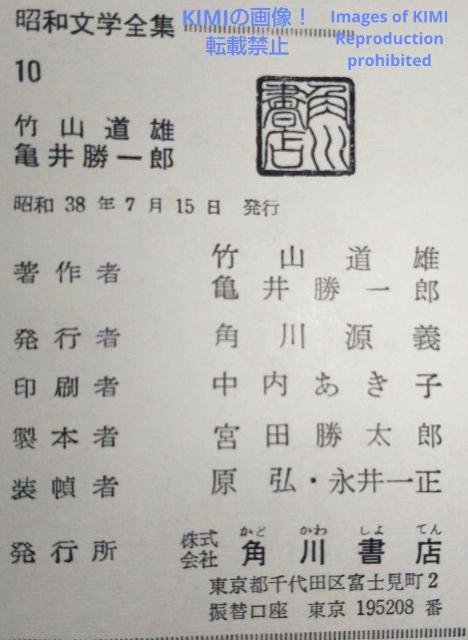 昭和文学全集
KIMIの画像！
転載禁止
Images of KIMI
Reproduction
prohibited
10
角川
書店
竹山道雄
亀井勝一郎
昭和 38 年 7 月 15 日 発行
著作者 竹山道雄
亀井勝一郎
発行者 角川源義
印刷者 中内あき子
製本者 宮田勝太郎
装幀者 原弘・永井一正
かど かわ しよ てん
発行所 株式会社 角川書店
東京都千代田区富士見町2
振替口座 東京 195208 番